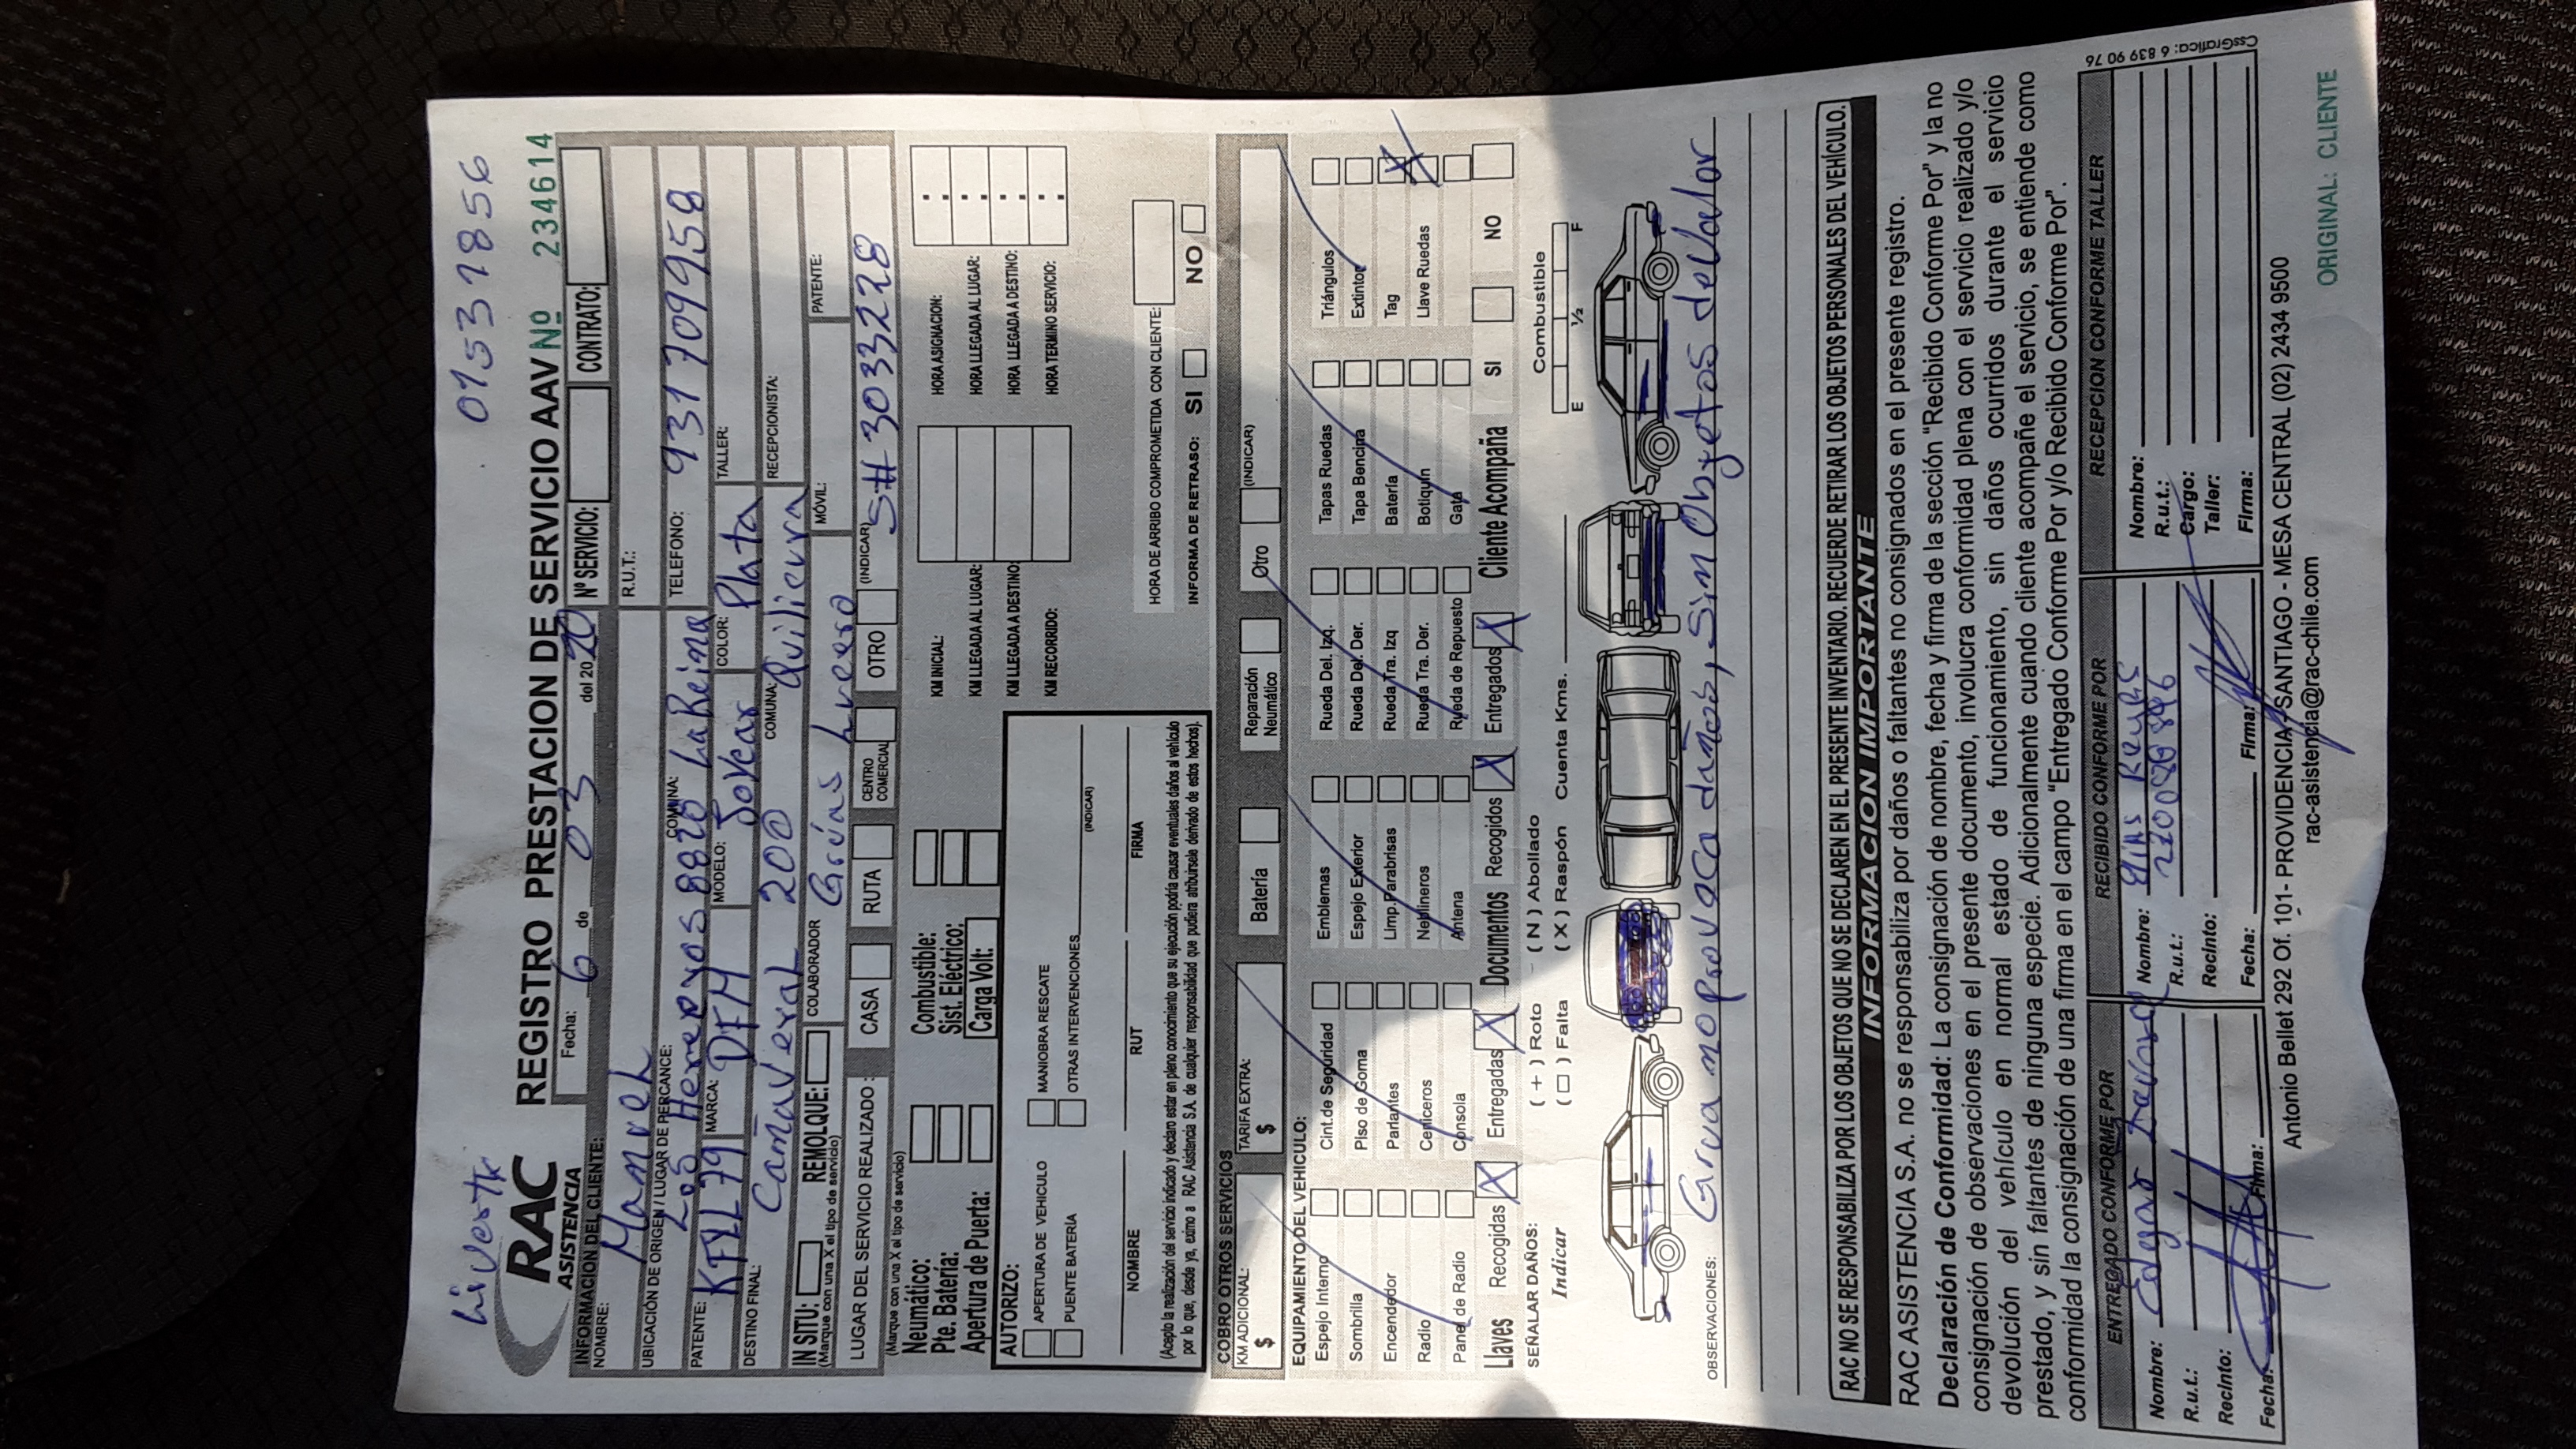 Liverty 0153 1856
RAC
ASISTENCIA
REGISTRO PRESTACION DE SERVICIO AAV Nº 234614
Fecha: 6 de 03 del 2020 Nº SERVICIO: CONTRATO:
INFORMACION DEL CLIENTE:
NOMBRE: Manuel R.U.T.:
UBICACIÓN DE ORIGEN / LUGAR DE PERCANCE: Los Hereyos 8820 COMUNA: La Reina TELEFONO: 931709958
PATENTE: KFYL79 MARCA: DFM MODELO: Joyear COLOR: Plata TALLER:
DESTINO FINAL: Cañaveral 200 COMUNA: Quilicura RECEPCIONISTA:
IN SITU: REMOLQUE: COLABORADOR Grúas Lucero MÓVIL: PATENTE:
(Marque con una X el tipo de servicio)
LUGAR DEL SERVICIO REALIZADO : CASA RUTA CENTRO COMERCIAL OTRO (INDICAR) S# 3033228
(Marque con una X el tipo de servicio)
Neumático: Combustible:
Pte. Batería: Sist. Eléctrico:
Apertura de Puerta: Carga Volt:
KM INICIAL: HORA ASIGNACION:
KM LLEGADA AL LUGAR: HORA LLEGADA AL LUGAR:
KM LLEGADA A DESTINO: HORA LLEGADA A DESTINO:
KM RECORRIDO: HORA TERMINO SERVICIO:
AUTORIZO:
APERTURA DE VEHICULO MANIOBRA RESCATE
PUENTE BATERÍA OTRAS INTERVENCIONES (INDICAR)
NOMBRE RUT FIRMA
(Acepto la realización del servicio indicado y declaro estar en pleno conocimiento que su ejecución podría causar eventuales daños al vehículo
por lo que, desde ya, eximo a RAC Asistencia S.A. de cualquier responsabilidad que pudiera atribuírsele derivado de estos hechos).
HORA DE ARRIBO COMPROMETIDA CON CLIENTE:
INFORMA DE RETRASO: SI NO
COBRO OTROS SERVICIOS
KM ADICIONAL: $ TARIFA EXTRA: $ Batería Reparación Neumático Otro (INDICAR)
EQUIPAMIENTO DEL VEHICULO:
Espejo Interno Cint.de Seguridad Emblemas Rueda Del. Izq. Tapas Ruedas Triángulos
Sombrilla Piso de Goma Espejo Exterior Rueda Del. Der. Tapa Bencina Extintor
Encendedor Parlantes Limp.Parabrisas Rueda Tra. Izq Batería Tag
Radio Ceniceros Neblineros Rueda Tra. Der. Botiquin Llave Ruedas
Panel de Radio Consola Antena Rueda de Repuesto Gata
Llaves Recogidas X Entregadas X Documentos Recogidos X Entregados X Cliente Acompaña SI NO
SEÑALAR DAÑOS: ( + ) Roto ( N ) Abollado
Indicar ( □ ) Falta ( X ) Raspón Cuenta Kms.
Combustible
E ½ F
OBSERVACIONES: Grua no provoca daños, sin Objetos de Valor
RAC NO SE RESPONSABILIZA POR LOS OBJETOS QUE NO SE DECLAREN EN EL PRESENTE INVENTARIO. RECUERDE RETIRAR LOS OBJETOS PERSONALES DEL VEHÍCULO.
INFORMACION IMPORTANTE
RAC ASISTENCIA S.A. no se responsabiliza por daños o faltantes no consignados en el presente registro.
Declaración de Conformidad: La consignación de nombre, fecha y firma de la sección "Recibido Conforme Por" y la no
consignación de observaciones en el presente documento, involucra conformidad plena con el servicio realizado y/o
devolución del vehículo en normal estado de funcionamiento, sin daños ocurridos durante el servicio
prestado, y sin faltantes de ninguna especie. Adicionalmente cuando cliente acompañe el servicio, se entiende como
conformidad la consignación de una firma en el campo "Entregado Conforme Por y/o Recibido Conforme Por".
ENTREGADO CONFORME POR RECIBIDO CONFORME POR RECEPCION CONFORME TALLER
Nombre: Edgar Nombre: Elias Reyes Nombre:
R.u.t.: R.u.t.: R.u.t.:
Recinto: Recinto: Cargo:
Taller:
Fecha: Firma: Fecha: Firma: Firma:
Antonio Bellet 292 Of. 101 - PROVIDENCIA - SANTIAGO - MESA CENTRAL (02) 2434 9500
rac-asistencia@rac-chile.com
ORIGINAL: CLIENTE
CssGrafica: 6 839 90 76